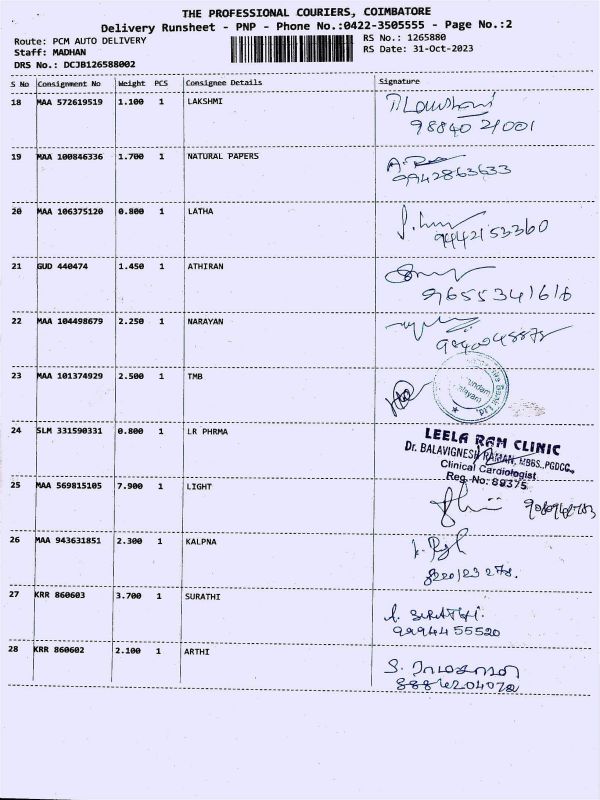 THE PROFESSIONAL COURIERS, COIMBATORE
Delivery Runsheet - PNP - Phone No.:0422-3505555 - Page No.:2
Route: PCM AUTO DELIVERY
RS No.: 1265880
Staff: MADHAN
RS Date: 31-Oct-2023
DRS No.: DCJB126588002
S No Consignment No Weight PCS Consignee Details Signature
18 MAA 572619519 1.100 1 LAKSHMI
98840 21001
19 MAA 100846336 1.700 1 NATURAL PAPERS
9942863633
20 MAA 106375120 0.800 1 LATHA
9442153360
21 GUD 440474 1.450 1 ATHIRAN
9655341616
22 MAA 104498679 2.250 1 NARAYAN
23 MAA 101374929 2.500 1 TMB
24 SLM 331590331 0.800 1 LR PHRMA
LEELA RAM CLINIC
Dr. BALAVIGNESH RAMAN, MBBS., PGDCC.,
Clinical Cardiologist
Reg. No: 89375
25 MAA 569815105 7.900 1 LIGHT
26 MAA 943631851 2.300 1 KALPNA
8220123278.
27 KRR 860603 3.700 1 SURATHI
99944 55520
28 KRR 860602 2.100 1 ARTHI